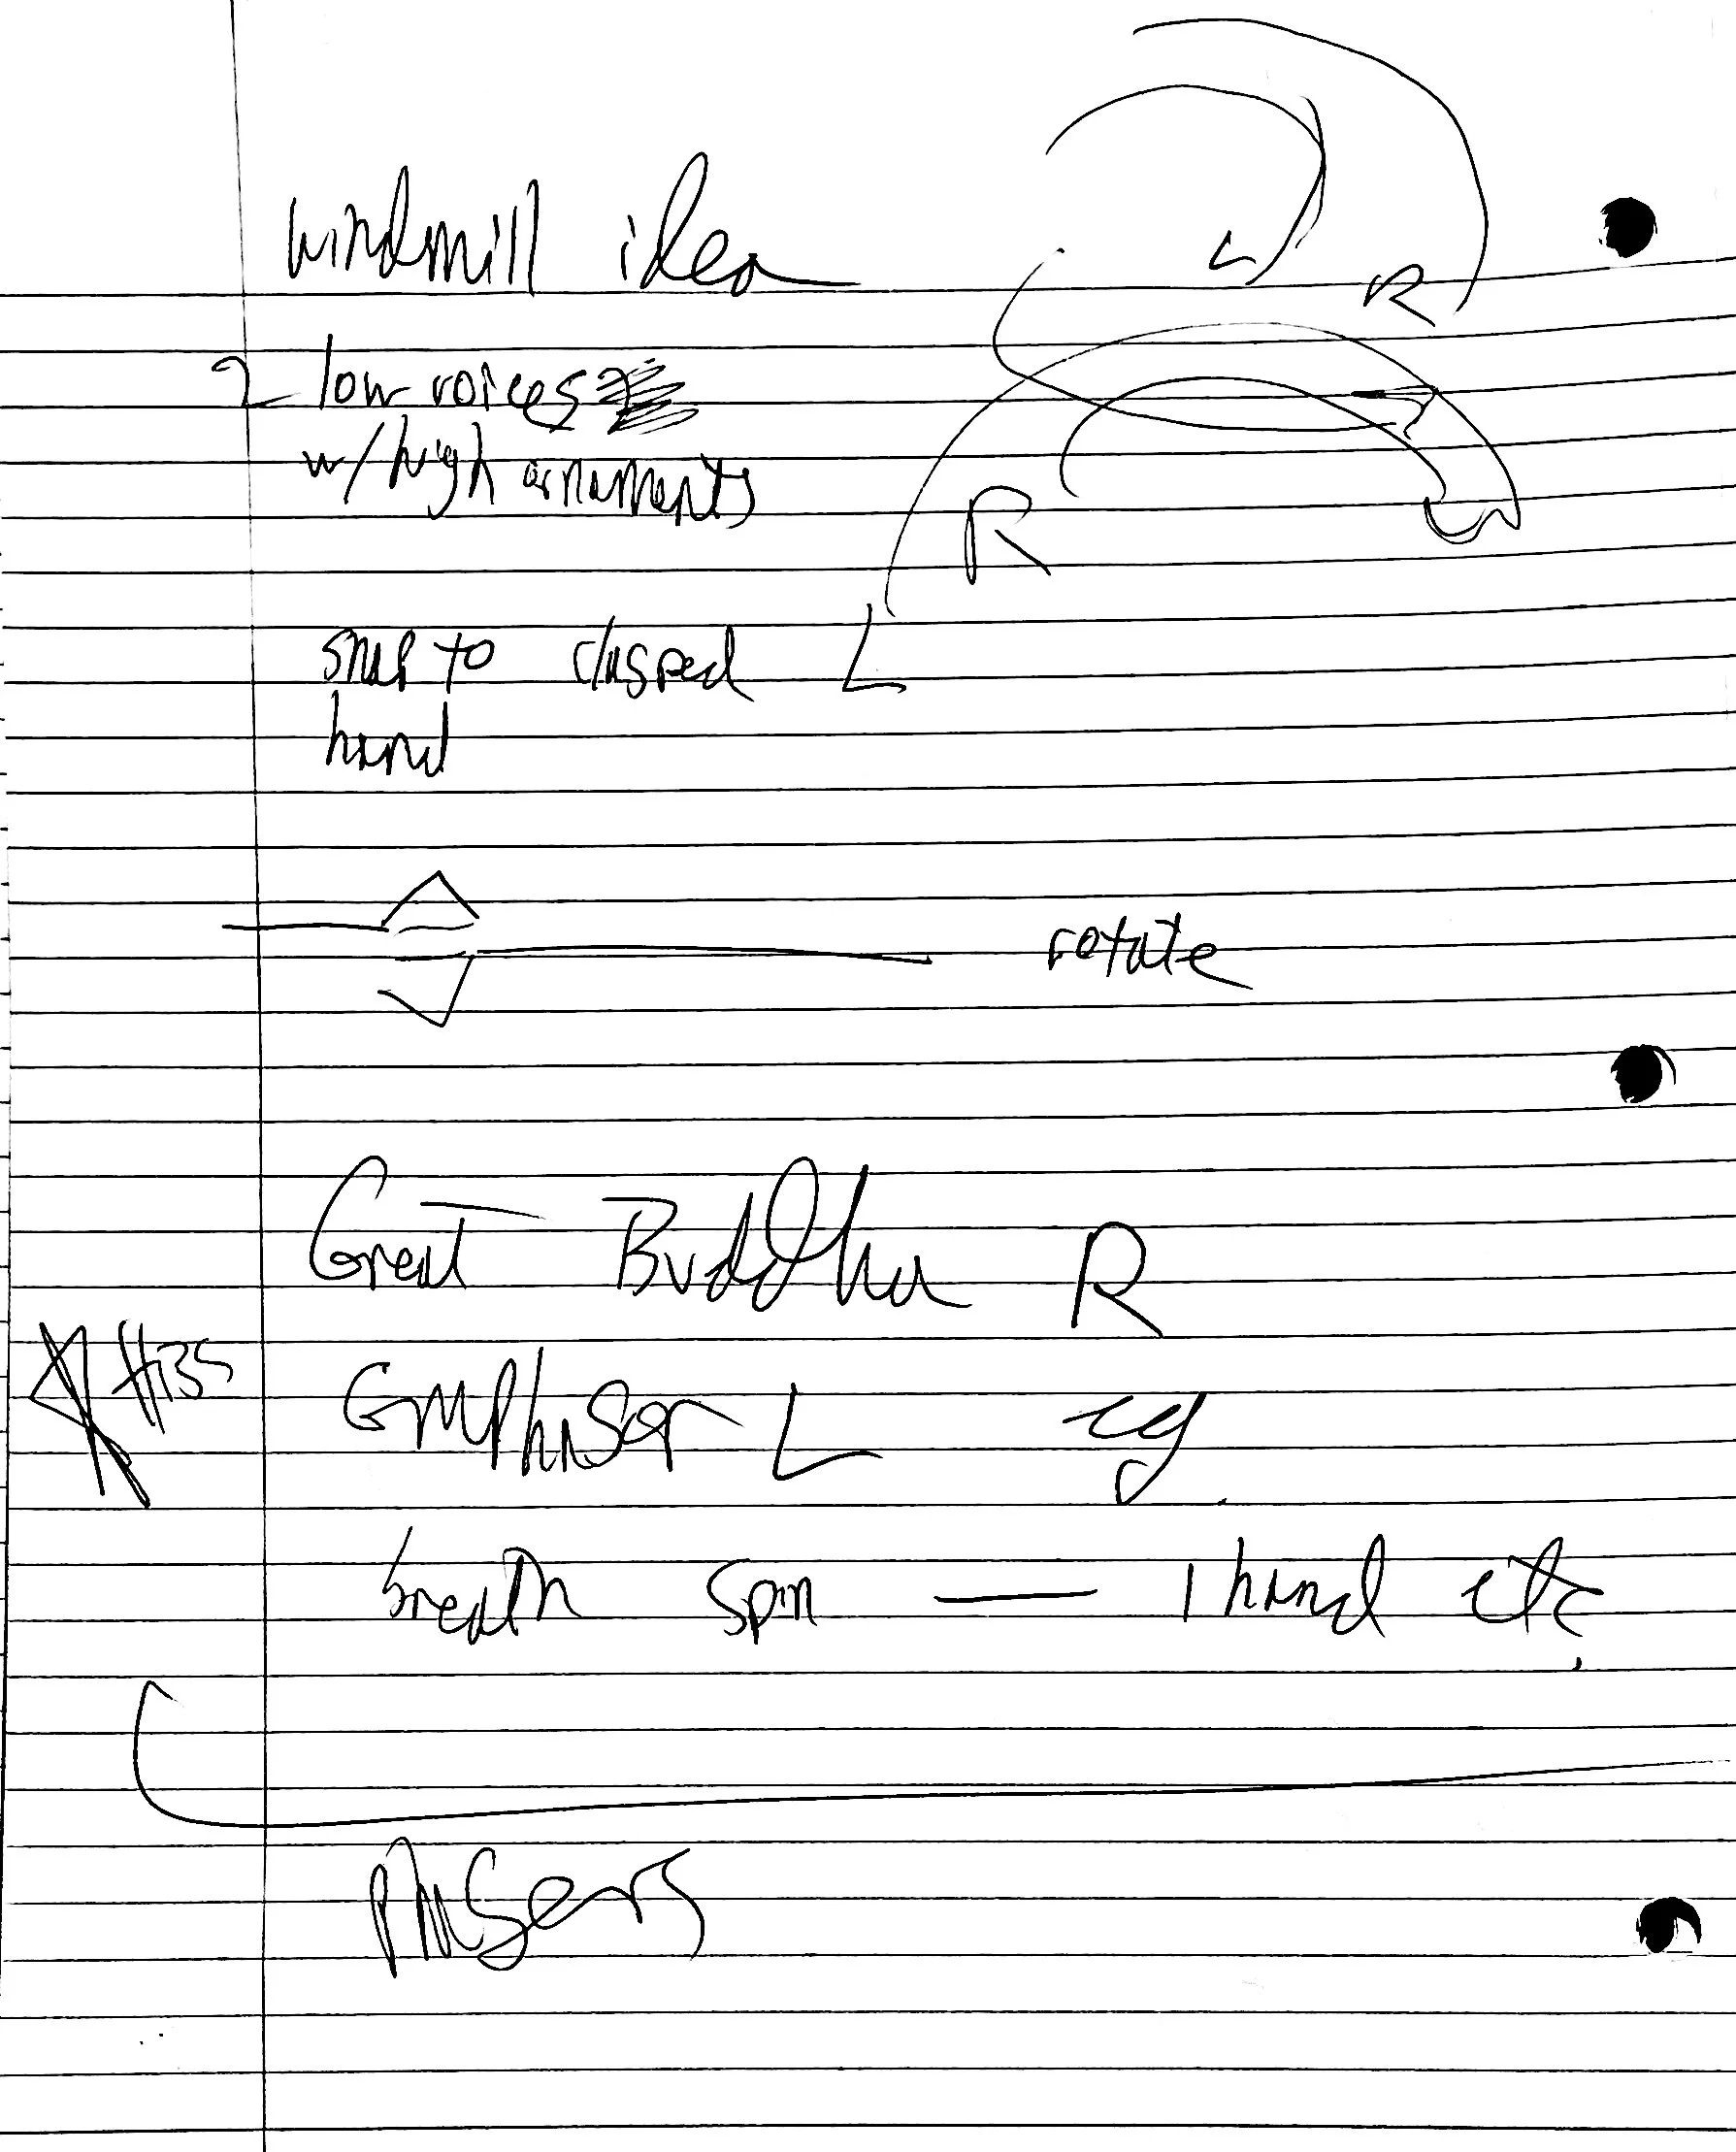 windmill idea
L
R
2 low voices
w/ high ornaments
R
snap to clasped L
hand
rotate
Great Buddha R
#135
Emphaser L
breath spin — 1 hand etc.
phasers